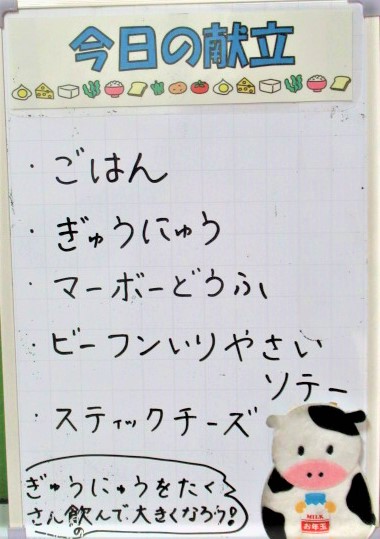 今日の献立
・ごはん
・ぎゅうにゅう
・マーボーどうふ
・ビーフンいりやさい
ソテー
・スティックチーズ
ぎゅうにゅうをたく
さん飲んで、大きくなろう!
の
MILK
お年玉